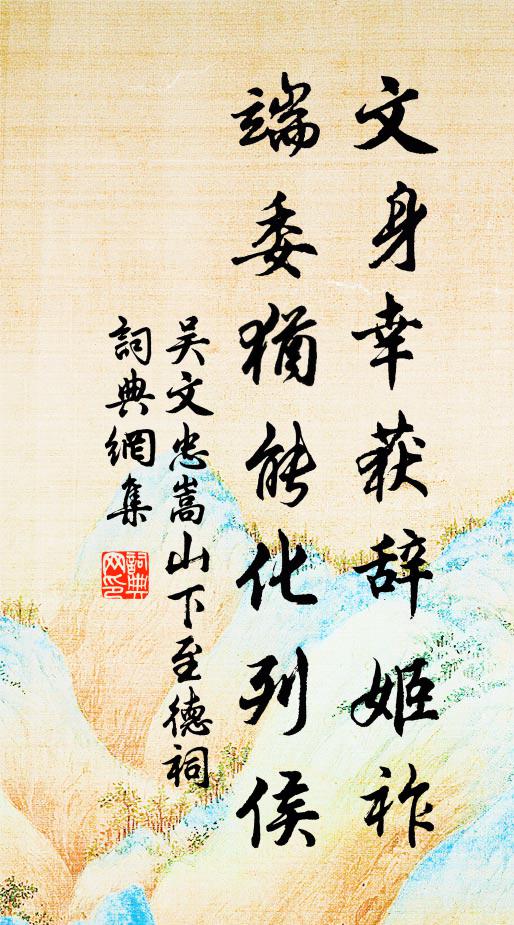 文身幸获辞姬祚
端委猶能化列侯
吴文忠嵩山下至德祠
詞典網集
詞典网印